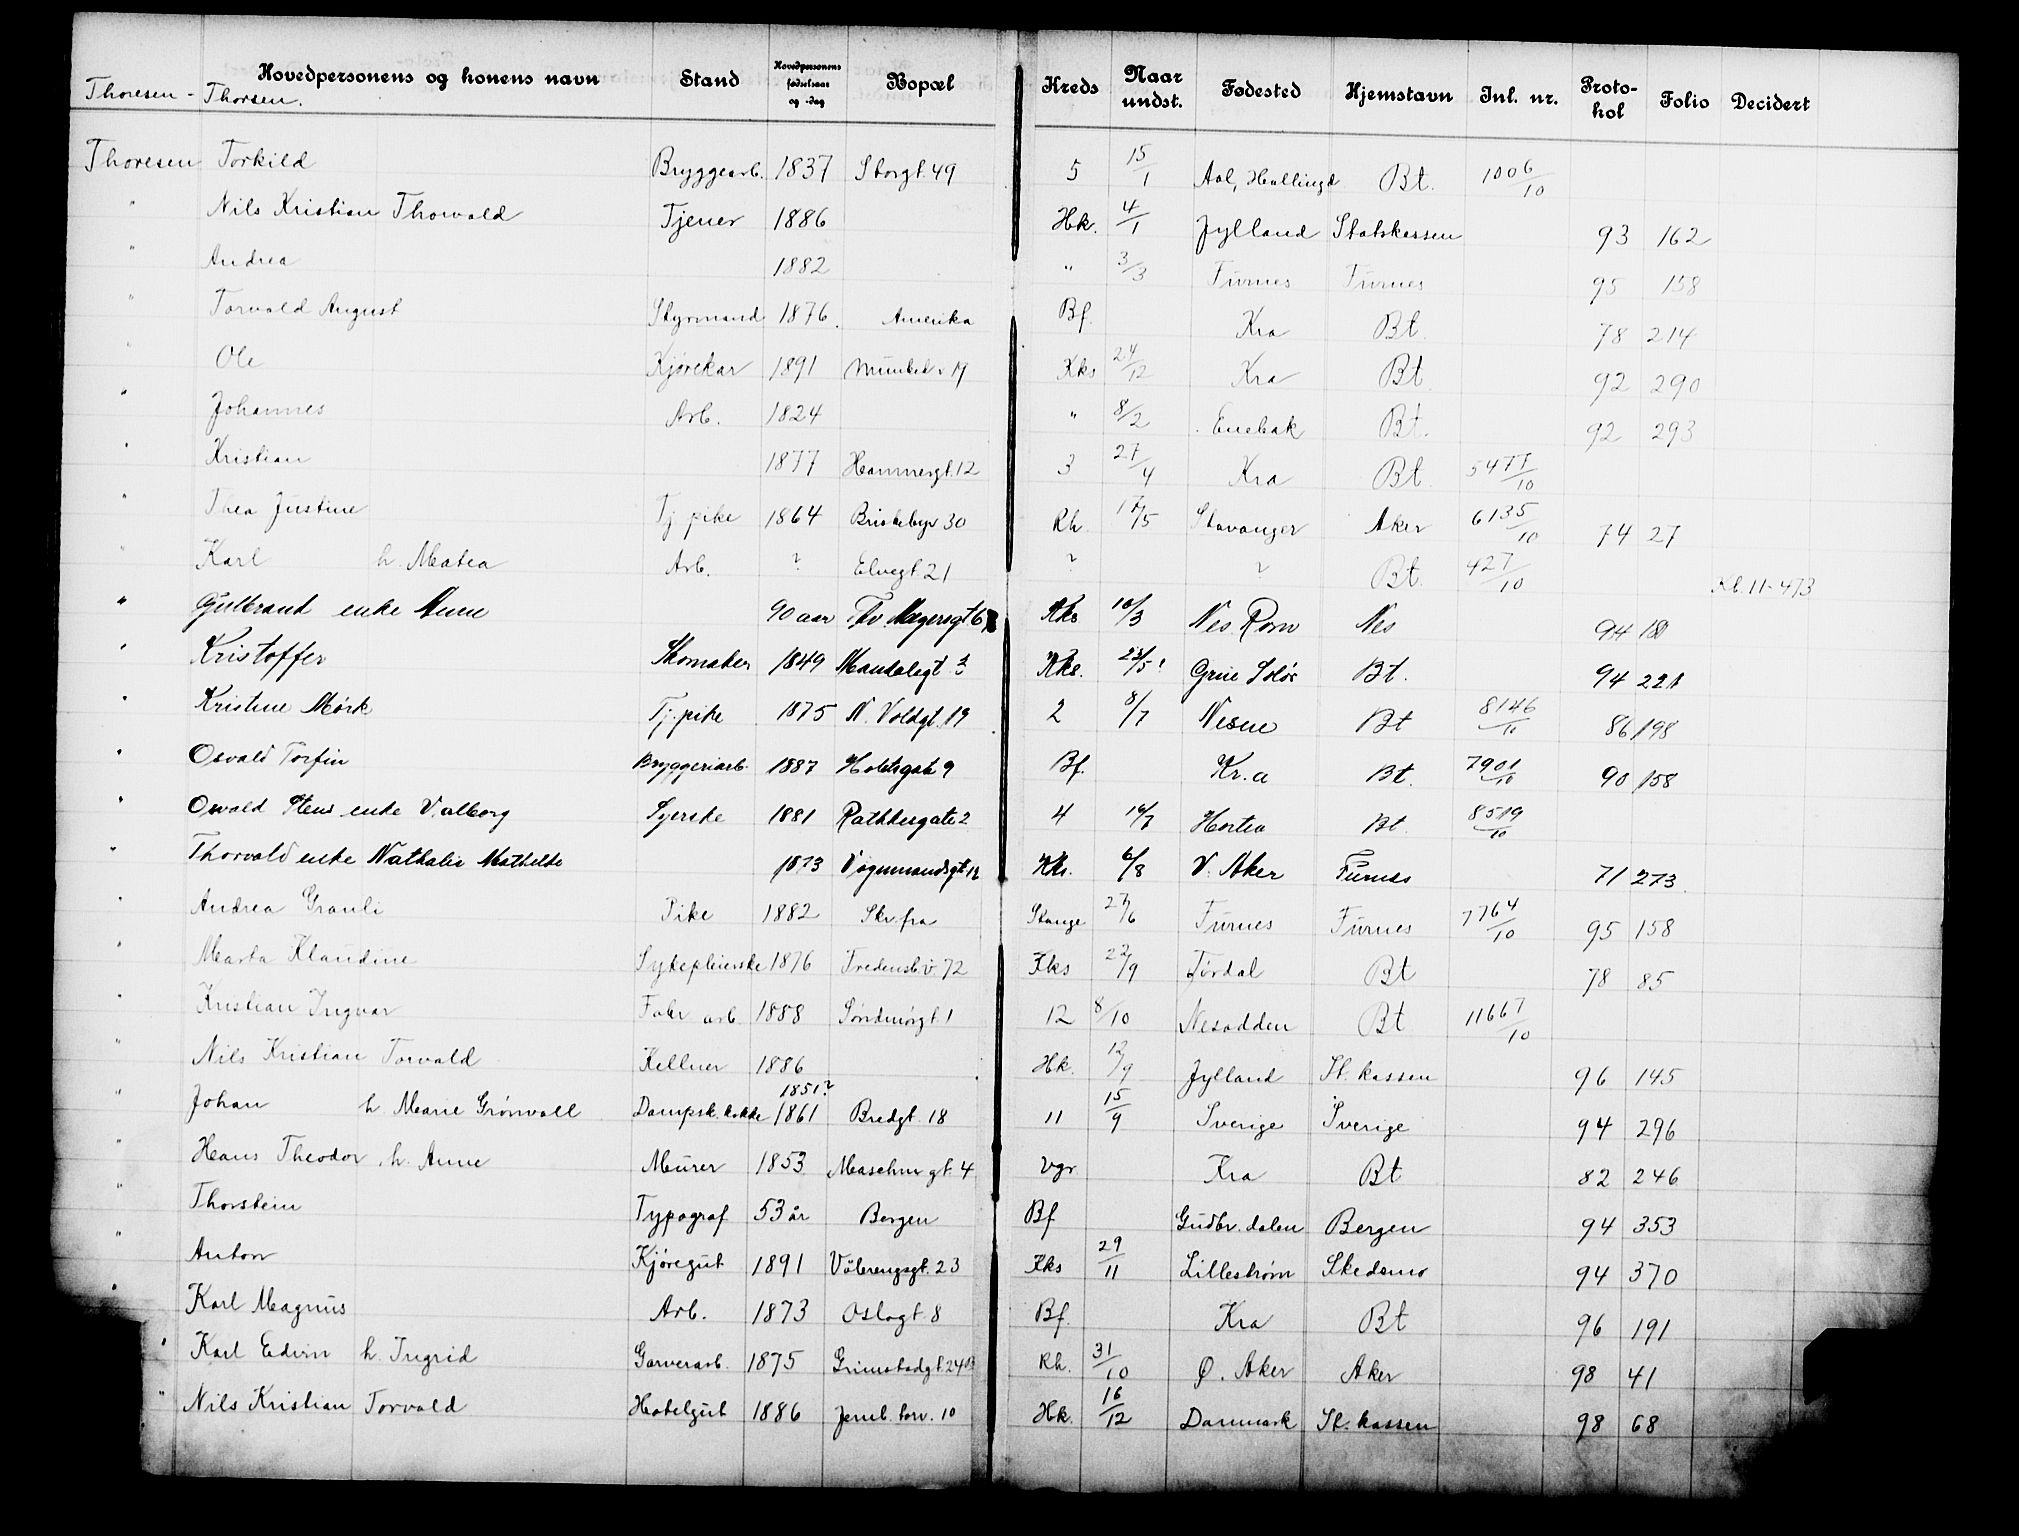 Thoresen - Thorsen.
Hovedpersonens og konens navn Stand Hovedpersonens fødselsaar og -dag Bopæl Kreds Naar undst. Fødested Hjemstavn Inl. nr. Proto-kol Folio Decidert
Thoresen Torkild Bryggearb. 1837 Storgt. 49 5 15/1 Aal, Hallingd Bt. 1006/10
" Nils Kristian Thorvald Tjener 1886 Hk. 4/1 Jylland Statskassen 93 162
" Andrea 1882 " 3/3 Furnes Furnes 95 158
" Torvald August Styrmand 1876. Amerika Bf. Kra Bt. 78 214
" Ole Kjørekar 1891 Munked v 19 Kks 24/12 Kra Bt. 92 290
" Johannes Arb. 1824 " 8/2 Enebak Bt. 92 293
" Kristian 1877 Hammergt. 12 3 27/4 Kra Bt. 5477/10
" Thea Justine Tj. pike 1864 Briskebyv 30 Rh. 17/5 Stavanger Aker 6135/10 74 27
" Karl h. Matea Arb. ? Elvegt. 21 ? ? Bt. 427/10 Kb. 11-473
" Gulbrand enke Anne 90 aar Thv Meyersgt 6 Kks 10/3 Nes Rom Nes 94 180
" Kristoffer Skomaker 1849 Mandalsgt. 3 Kks. 23/5 Grue Solør Bt. 94 221
" Kristine Mørk Tj. pike 1875 N. Voldgt. 19 2 8/7 Nesne Bt 8146/10 86 198
" Osvald Torfin Bryggeriarb. 1887 Holstsgate 9 Bf. Kr.a Bt. 7901/10 90 158
" Osvald Stens enke Valborg Syerske 1881 Rathkesgate 2 4 Horten Bt. 8519/10
" Thorvald enke Nathalie Mathilde 1873 Vognmandsgt 12 Kks. 6/8 V. Aker Furnes 71 273.
" Andrea Granli Pike 1882 Skr. fra Stange 27/6 Furnes Furnes 7764/10 95 158
" Marta Klaudine Sykepleierske 1876 Fredensb.v. 72 Kks 22/9 Tørdal Bt 78 85
" Kristian Ingvar Fabr arb. 1888 Søndmørgt. 1 12 8/10 Nesodden Bt 11667/10
" Nils Kristian Torvald Kellner 1886 Hk. 12/9 Jylland St. kassen 96 145
" Johan h. Marie Grønvall Dampsk. kokke 1851? 1861 Bredgt. 18 11 15/9 Sverige Sverige 94 296
" Hans Theodor h. Anne Murer 1853 Maschm gt. 4 Vgr. Kra Bt 82 246
" Thorstein Typograf 53 år Bergen Bf Gudbr. dalen Bergen 94 353
" Anton Kjøregut 1891 Vålerengsgt. 23 Kks 29/11 Lillestrøm Skedsmo 94 370
" Karl Magnus Arb. 1873 Oslogt. 8 Bf. Kra Bt 96 191
" Karl Edvin h. Ingrid Garverarb. 1875 Grimstadgt. 24 Rh. 31/10 Ø. Aker Aker 98 41
" Nils Kristian Torvald Hotelgut 1886 Jernb. torv. 10 Hk. 16/12 Danmark St. kassen 98 68